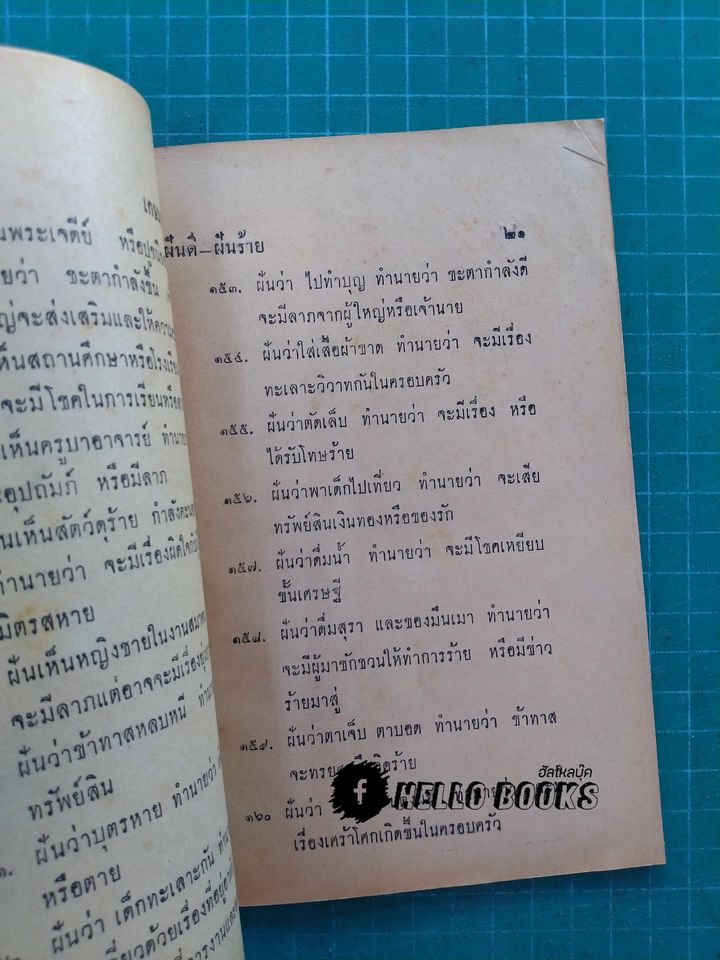 นพระเจดีย์ หรือปูชนี
ายว่า ชะตากำลังขึ้น
ญ่จะส่งเสริมและให้ความ
ห็นสถานศึกษาหรือโรงเรียน
จะมีโชคในการเรียนหรือ
เห็นครูบาอาจารย์ ทำนาย
ะอุปถัมภ์ หรือมีลาภ
นเห็นสัตว์ดุร้าย กำลัง
ทำนายว่า จะมีเรื่องผิดใจกับ
มิตรสหาย
ฝันเห็นหญิงชายในงาน
จะมีลาภแต่อาจจะมีเรื่อง
ฝันว่าข้าทาสหลบหนี
ทรัพย์สิน
ฝันว่าบุตรหาย ทำนายว่า
หรือตาย
ฝันว่า เด็กทะเลาะกัน
ด้วยเรื่องที่อยู่
ฝันดี—ฝันร้าย ๒๑
๑๕๓. ฝันว่า ไปทำบุญ ทำนายว่า ชะตากำลังดี
จะมีลาภจากผู้ใหญ่หรือเจ้านาย
๑๕๔. ฝันว่าใส่เสื้อผ้าขาด ทำนายว่า จะมีเรื่อง
ทะเลาะวิวาทกันในครอบครัว
๑๕๕. ฝันว่าตัดเล็บ ทำนายว่า จะมีเรื่อง หรือ
ได้รับโทษร้าย
๑๕๖. ฝันว่าพาเด็กไปเที่ยว ทำนายว่า จะเสีย
ทรัพย์สินเงินทองหรือของรัก
๑๕๗. ฝันว่าดื่มน้ำ ทำนายว่า จะมีโชคเหยียบ
ขั้นเศรษฐี
๑๕๘. ฝันว่าดื่มสุรา และของมึนเมา ทำนายว่า
จะมีผู้มาชักชวนให้ทำการร้าย หรือมีข่าว
ร้ายมาสู่
๑๕๙. ฝันว่าตาเจ็บ ตาบอด ทำนายว่า ข้าทาส
จะทรยศ
ฮัลโหลบุ๊ค
f HELLO BOOKS
๑๖๐ ฝันว่า
เรื่องเศร้าโศกเกิดขึ้นในครอบครัว